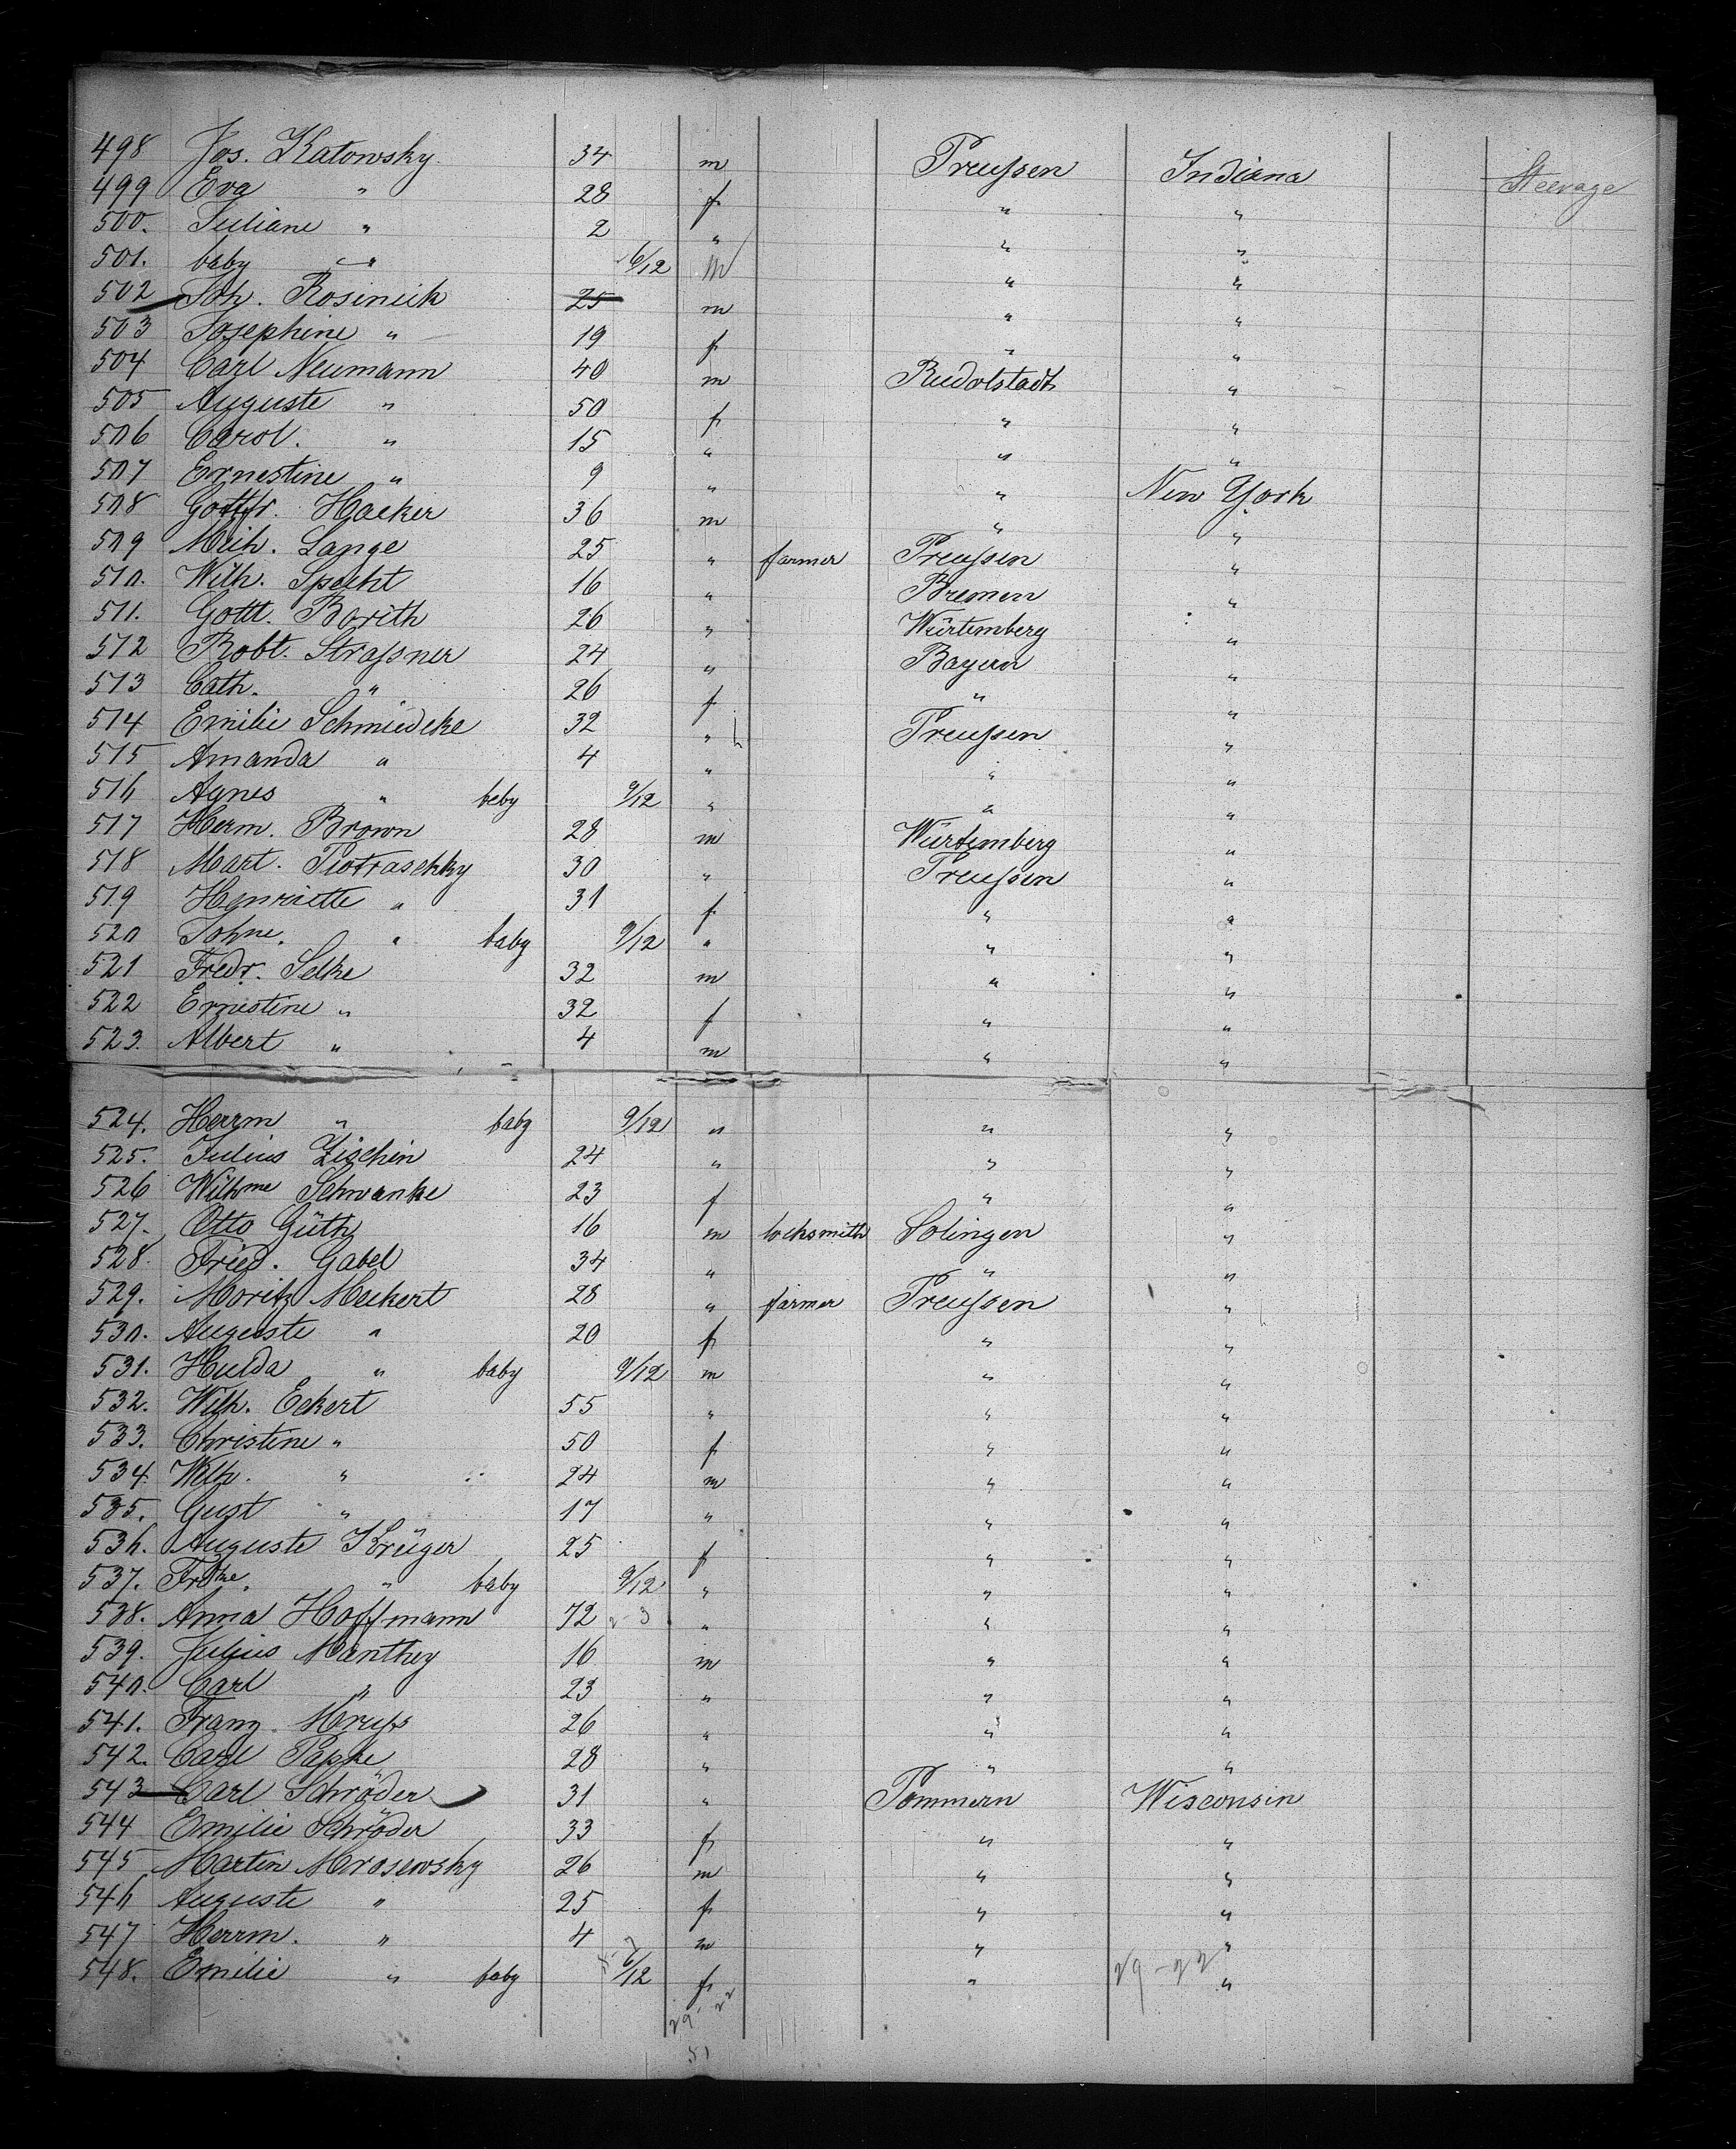 498 Jos. Katowsky 34 m Preußen Indiana Steerage
499 Eva " 28 f " "
500. Juliane " 2 " " "
501. baby " 6/12 m " "
502 Joh. Rosinick 25 m " "
503 Josephine " 19 f " "
504 Carl Neumann 40 m Rudolstadt "
505 Auguste " 50 f " "
506 Carol. " 15 " " "
507 Ernestine " 9 " " New York
508 Gottfr. Hacker 36 m " "
509 Mich. Lange 25 " farmer Preußen "
510. Wilh. Specht 16 " Bremen "
511. Gottl. Borith 26 " Würtemberg "
512 Robt. Straßner 24 " Bayern "
513 Cath. " 26 f " "
514 Emilie Schmiedeke 32 " Preußen "
515 Amanda " 4 " " "
516 Agnes " beby 9/12 " " "
517 Herm. Brown 28 m Würtemberg "
518 Mart. Piotraschky 30 " Preußen "
519 Henriette " 31 f " "
520 Johne. " baby 9/12 " " "
521 Fredr. Selke 32 m " "
522 Ernestine " 32 f " "
523. Albert " 4 m " "
524. Herrm " baby 9/12 " " "
525. Julius Zischin 24 " " "
526 Wilhme Schwanke 23 f " "
527. Otto Güth 16 m locksmith Solingen "
528. Fried. Gabel 34 " " "
529. Moritz Meckert 28 " farmer Preußen "
530. Auguste " 20 f " "
531. Hulda " baby 9/12 m " "
532. Wilh. Eckert 55 " " "
533. Christine " 50 f " "
534. Wilh. " 24 m " "
535. Gust " 17 " " "
536. Auguste Krüger 25 f " "
537. Frdke. " baby 9/12 " " "
538. Anna Hoffmann 72 " " "
539. Julius Manthey 16 m " "
540. Carl " 23 " " "
541. Franz 26 " " "
542. Carl Papke 28 " " "
543 Carl Schröder 31 " Pommern Wisconsin
544 Emilie Schröder 33 f " "
545 Martin Mrosewsky 26 m " "
546 Auguste " 25 f " "
547 Herrm. " 4 m " "
548. Emilie " baby 6/12 f " "
29-22
29 22
51